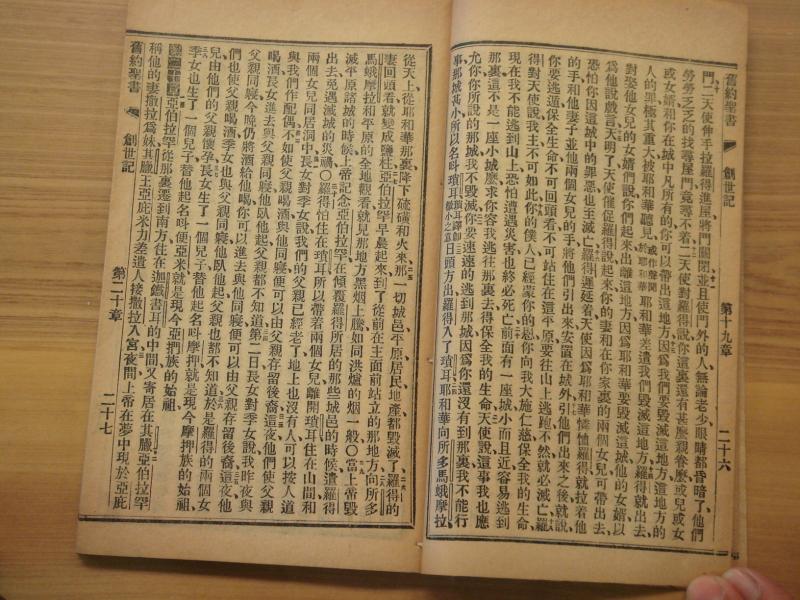 舊約聖書 創世記 第十九章 二十六
門、二天使伸手拉羅得進屋、將門關閉、並且使門外的人、無論老少、眼睛都昏暗了、他們
勞勞乏乏的找尋屋門、竟尋不着、二天使對羅得說、你這裏還有甚麼親眷麼、或兒或女
或女婿和你在城中凡所有的、你可以帶出這地方、因爲我們要毀滅這地方、這地方的
人的罪極其重大、被耶和華聽見、或作聲聞於耶和華耶和華差遣我們毀滅這地方、羅得就出去、
對娶他女兒的女婿們說、你們起來出離這地方、因爲耶和華要毀滅這城、他的女婿以
爲他說戲言、天明了、天使催促羅得說、起來將你的妻和在你家裏的兩個女兒、可帶出去、
恐怕你因這城中的罪惡、也至滅亡、羅得遲延着、天使因爲耶和華憐恤羅得、就拉着他
的手和他妻子並他兩個女兒的手、將他們引出來、安置在城外、引他們出來之後、就說、
你要逃遁保全生命、不可回頭看、不可站住在這平原、要往山上逃跑、不然就必滅亡、羅
得對天使說、我主不可如此、你的僕人已經蒙你的恩、你向我大施仁慈保全我的生命、
現在我不能逃到山上、恐怕遭遇災害也終必死亡、前面有一座城、小而且近、容易逃到
那裏、這不是一座小城麼、求你容我逃往那裏去、得保全我的生命、天使說、這事我也應
允你、你所說的那城、我不毀滅、你要速速的逃到那裏、因爲你還沒有到那裏、我不能行
事、那城甚小、所以名叫瑣耳、瑣耳譯卽微小之意日頭方出、羅得入了瑣耳、耶和華向所多馬蛾摩拉
從天上從耶和華那裏、降下硫磺和火來、那一切城邑平原居民地產、都毀滅了、羅得的
妻回頭看、就變成鹽柱、亞伯拉罕早晨起來、到了從前在主面前站立的那地方、向所多
馬蛾摩拉和平原的全地觀看、就見那地方黑烟上騰、如同洪爐的烟一般、〇當上帝毀
滅平原諸城的時候、上帝記念亞伯拉罕、在傾覆羅得所居的那些城邑的時候、遣羅得
出去、免遇滅城的災禍、〇羅得怕住在瑣耳、所以帶着兩個女兒、離開瑣耳、住在山間、和
兩個女兒同居洞中、長女對季女說、我們的父親已經老了、地上也沒有人、可以按人道
與我們作配偶、不如使父親喝酒、與他同寢、便可以由父親存留後裔、這夜他們使父親
喝酒、長女進去與父親同寢、他臥他起父親都不知道、第二日長女對季女說、我昨夜與
父親同寢、今晚仍將酒給他喝、你可以進去與他同寢、便可以由父親存留後裔、這夜他
們也使父親喝酒、季女也與父親同寢、他臥他起父親也都不知道、於是羅得的兩個女
兒由他們的父親懷孕、長女生了一個兒子、替他起名叫摩押、就是現今摩押族的始祖、
季女也生了一個兒子、替他起名叫便亞米、就是現今亞捫族的始祖、
第二十章亞伯拉罕從那裏遷到南方、住在迦鐵書耳的中間、又寄居在其臘、亞伯拉罕
稱他的妻撒拉爲妹、其臘王亞庇米力差遣人接撒拉入宮、夜間上帝在夢中現於亞庇
舊約聖書 創世記 第二十章 二十七